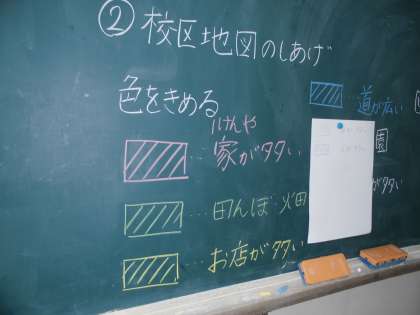 ② 校区地図のしあげ
色をきめる
道が広い
けんや
家がタタい
園
田んぼ 火田
がタタい
お店がタタい